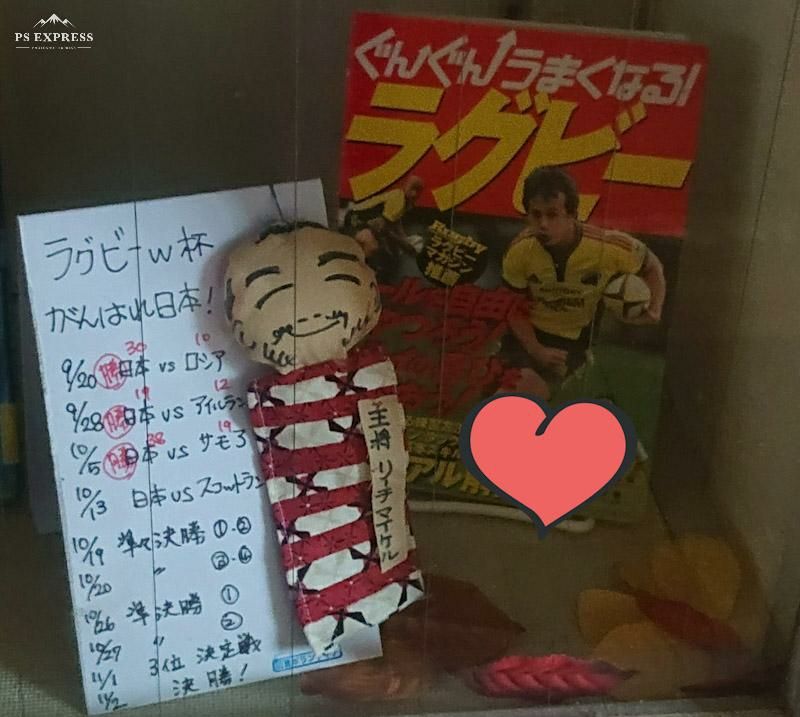 PS EXPRESS
ぐんぐんうまくなる!
ラグビー
Rugby
ラグビー
マガジン
ラグビーW杯
がんばれ日本!
30 10
9/20 勝 日本 vs ロシア
19 12
9/28 勝 日本 vs アイルラン
38 19
10/5 勝 日本 vs サモア
10/13 日本 vs スコットラン
10/19 準々決勝 ①・②
10/20 〃 ③・④
10/26 準決勝 ①
10/27 〃 ②
11/1 3位決定戦
11/2 決勝!
主将 リィチマイケル